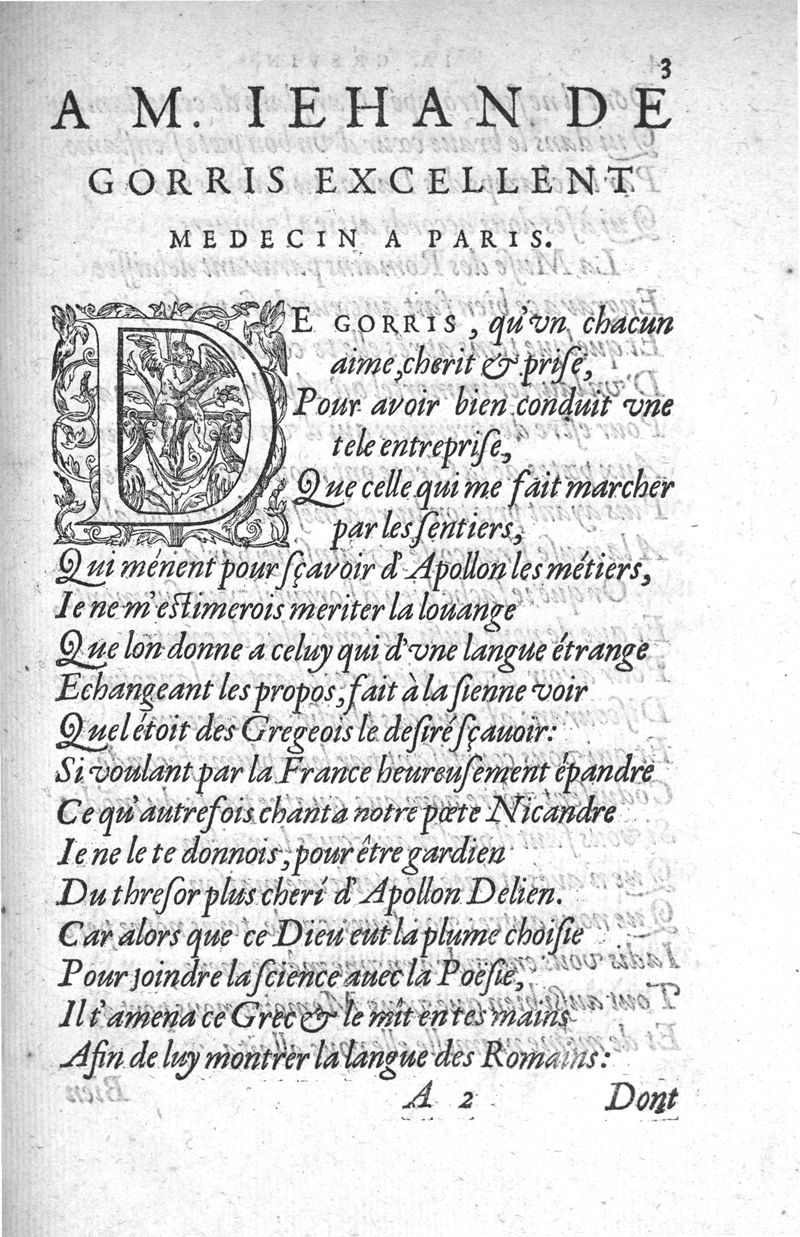 3
A M. IEHAN DE
GORRIS EXCELLENT
MEDECIN A PARIS.
DE GORRIS, qu'vn chacun
aime, cherit & prise,
Pour avoir bien conduit vne
tele entreprise,
Que celle qui me fait marcher
par les sentiers,
Qui ménent pour sçavoir d'Apollon les métiers,
Ie ne m'estimerois meriter la louange
Que lon donne a celuy qui d'vne langue étrange
Echangeant les propos, fait à la sienne voir
Quel étoit des Gregeois le desiré sçauoir:
Si voulant par la France heureusement épandre
Ce qu'autrefois chanta notre pœte Nicandre
Ie ne le te donnois, pour être gardien
Du thresor plus cheri d'Apollon Delien.
Car alors que ce Dieu eut la plume choisie
Pour joindre la science auec la Poësie,
Il t'amena ce Grec & le mît en tes mains
Afin de luy montrer la langue des Romains:
A 2 Dont